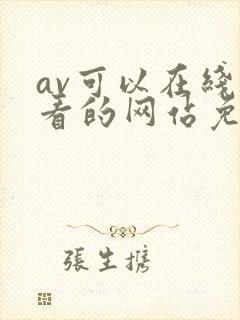 av可以在线
看的网站免
張生携